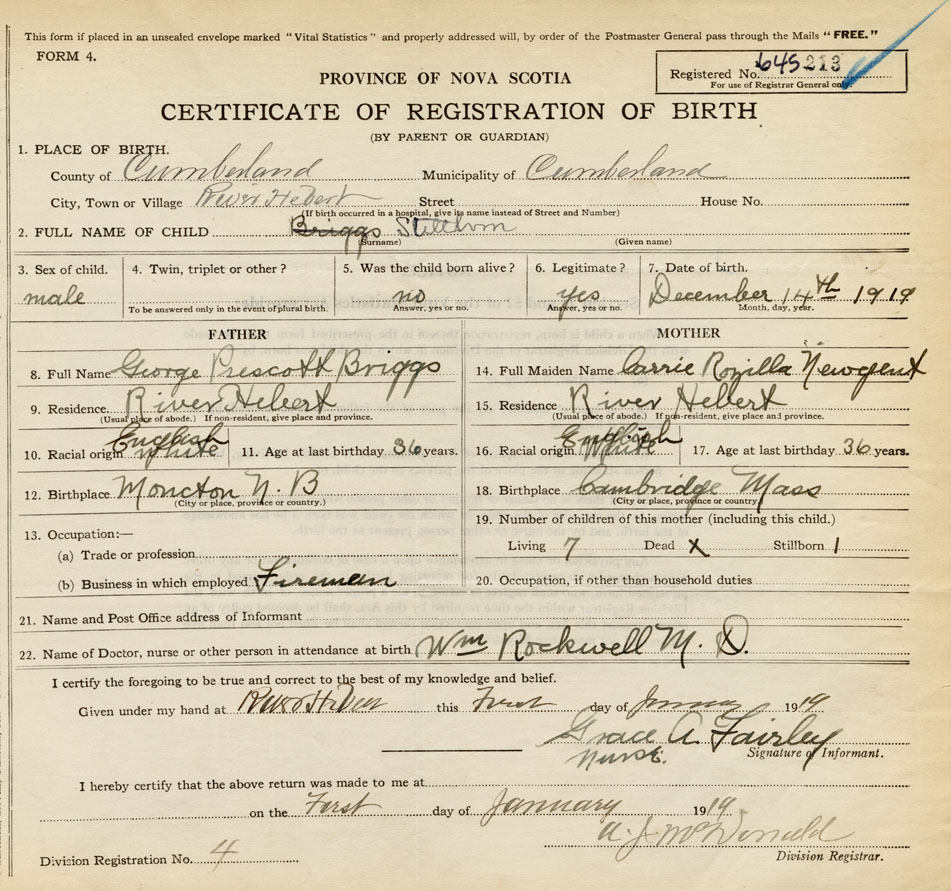 This form if placed in an unsealed envelope marked "Vital Statistics" and properly addressed will, by order of the Postmaster General pass through the Mails "FREE."
FORM 4.
Registered No. 645213
For use of Registrar General only.
PROVINCE OF NOVA SCOTIA
CERTIFICATE OF REGISTRATION OF BIRTH
(BY PARENT OR GUARDIAN)
1. PLACE OF BIRTH.
County of Cumberland Municipality of Cumberland
City, Town or Village River Hebert Street House No.
(If birth occurred in a hospital, give its name instead of Street and Number)
2. FULL NAME OF CHILD Briggs Stillborn
(Surname) (Given name)
3. Sex of child. 4. Twin, triplet or other? 5. Was the child born alive? 6. Legitimate? 7. Date of birth.
male no yes December 14th 1919
To be answered only in the event of plural birth. Answer, yes or no. Answer, yes or no. Month, day, year.
FATHER MOTHER
8. Full Name George Prescott Briggs 14. Full Maiden Name Carrie Rozilla Newgent
9. Residence. River Hebert 15. Residence River Hebert
(Usual place of abode.) If non-resident, give place and province. (Usual place of abode.) If non-resident, give place and province.
English English
10. Racial origin white 11. Age at last birthday 36 years. 16. Racial origin White 17. Age at last birthday 36 years.
12. Birthplace Moncton N.B 18. Birthplace Cambridge Mass
(City or place, province or country.) (City or place, province or country.)
13. Occupation:— 19. Number of children of this mother (including this child.)
(a) Trade or profession Living 7 Dead X Stillborn 1
(b) Business in which employed Fireman 20. Occupation, if other than household duties
21. Name and Post Office address of Informant
22. Name of Doctor, nurse or other person in attendance at birth Wm Rockwell M. D.
I certify the foregoing to be true and correct to the best of my knowledge and belief.
Given under my hand at River Hebert this First day of January 1919
Grace A. Fairley
Nurse. Signature of Informant.
I hereby certify that the above return was made to me at
on the First day of January 1919
A. J. McDonald
Division Registrar.
Division Registration No. 4